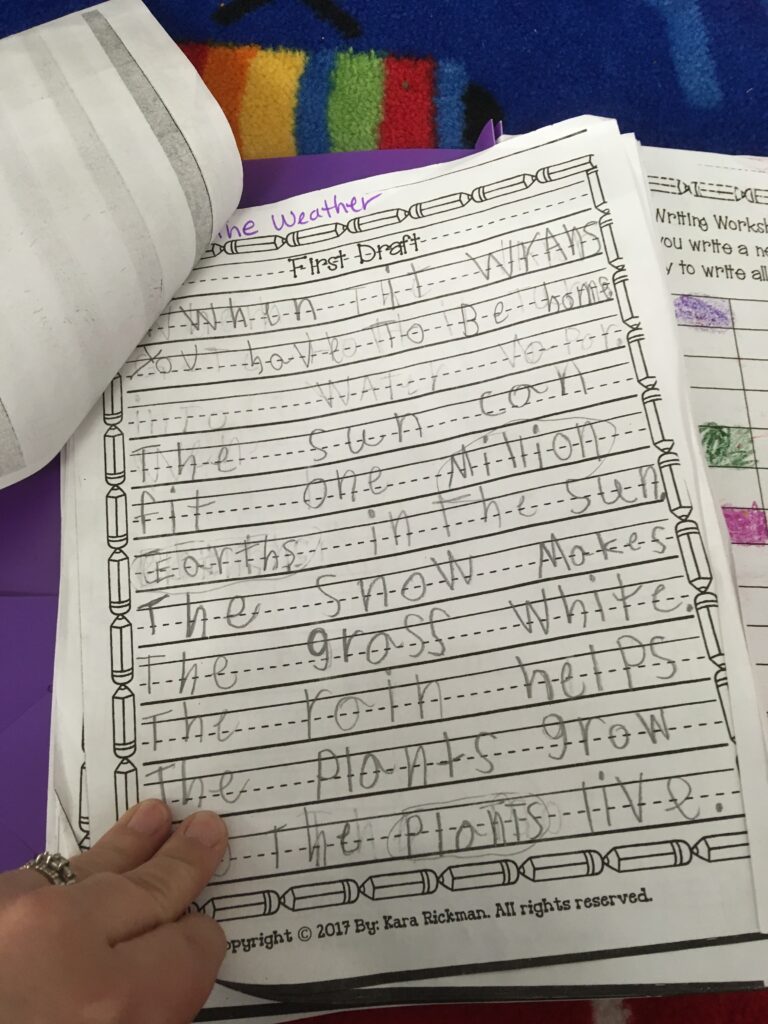 The Weather
First Draft
When it WRANS
You have to Be home
into WATer Vo Por.
The sun can
fit one Million
Earths in the sun.
The snow Makes
The grass white.
The rain helps
The Plants grow
The Plants live.
Copyright © 2017 By: Kara Rickman. All rights reserved.
Writing Worksh
you write a ne
y to write all